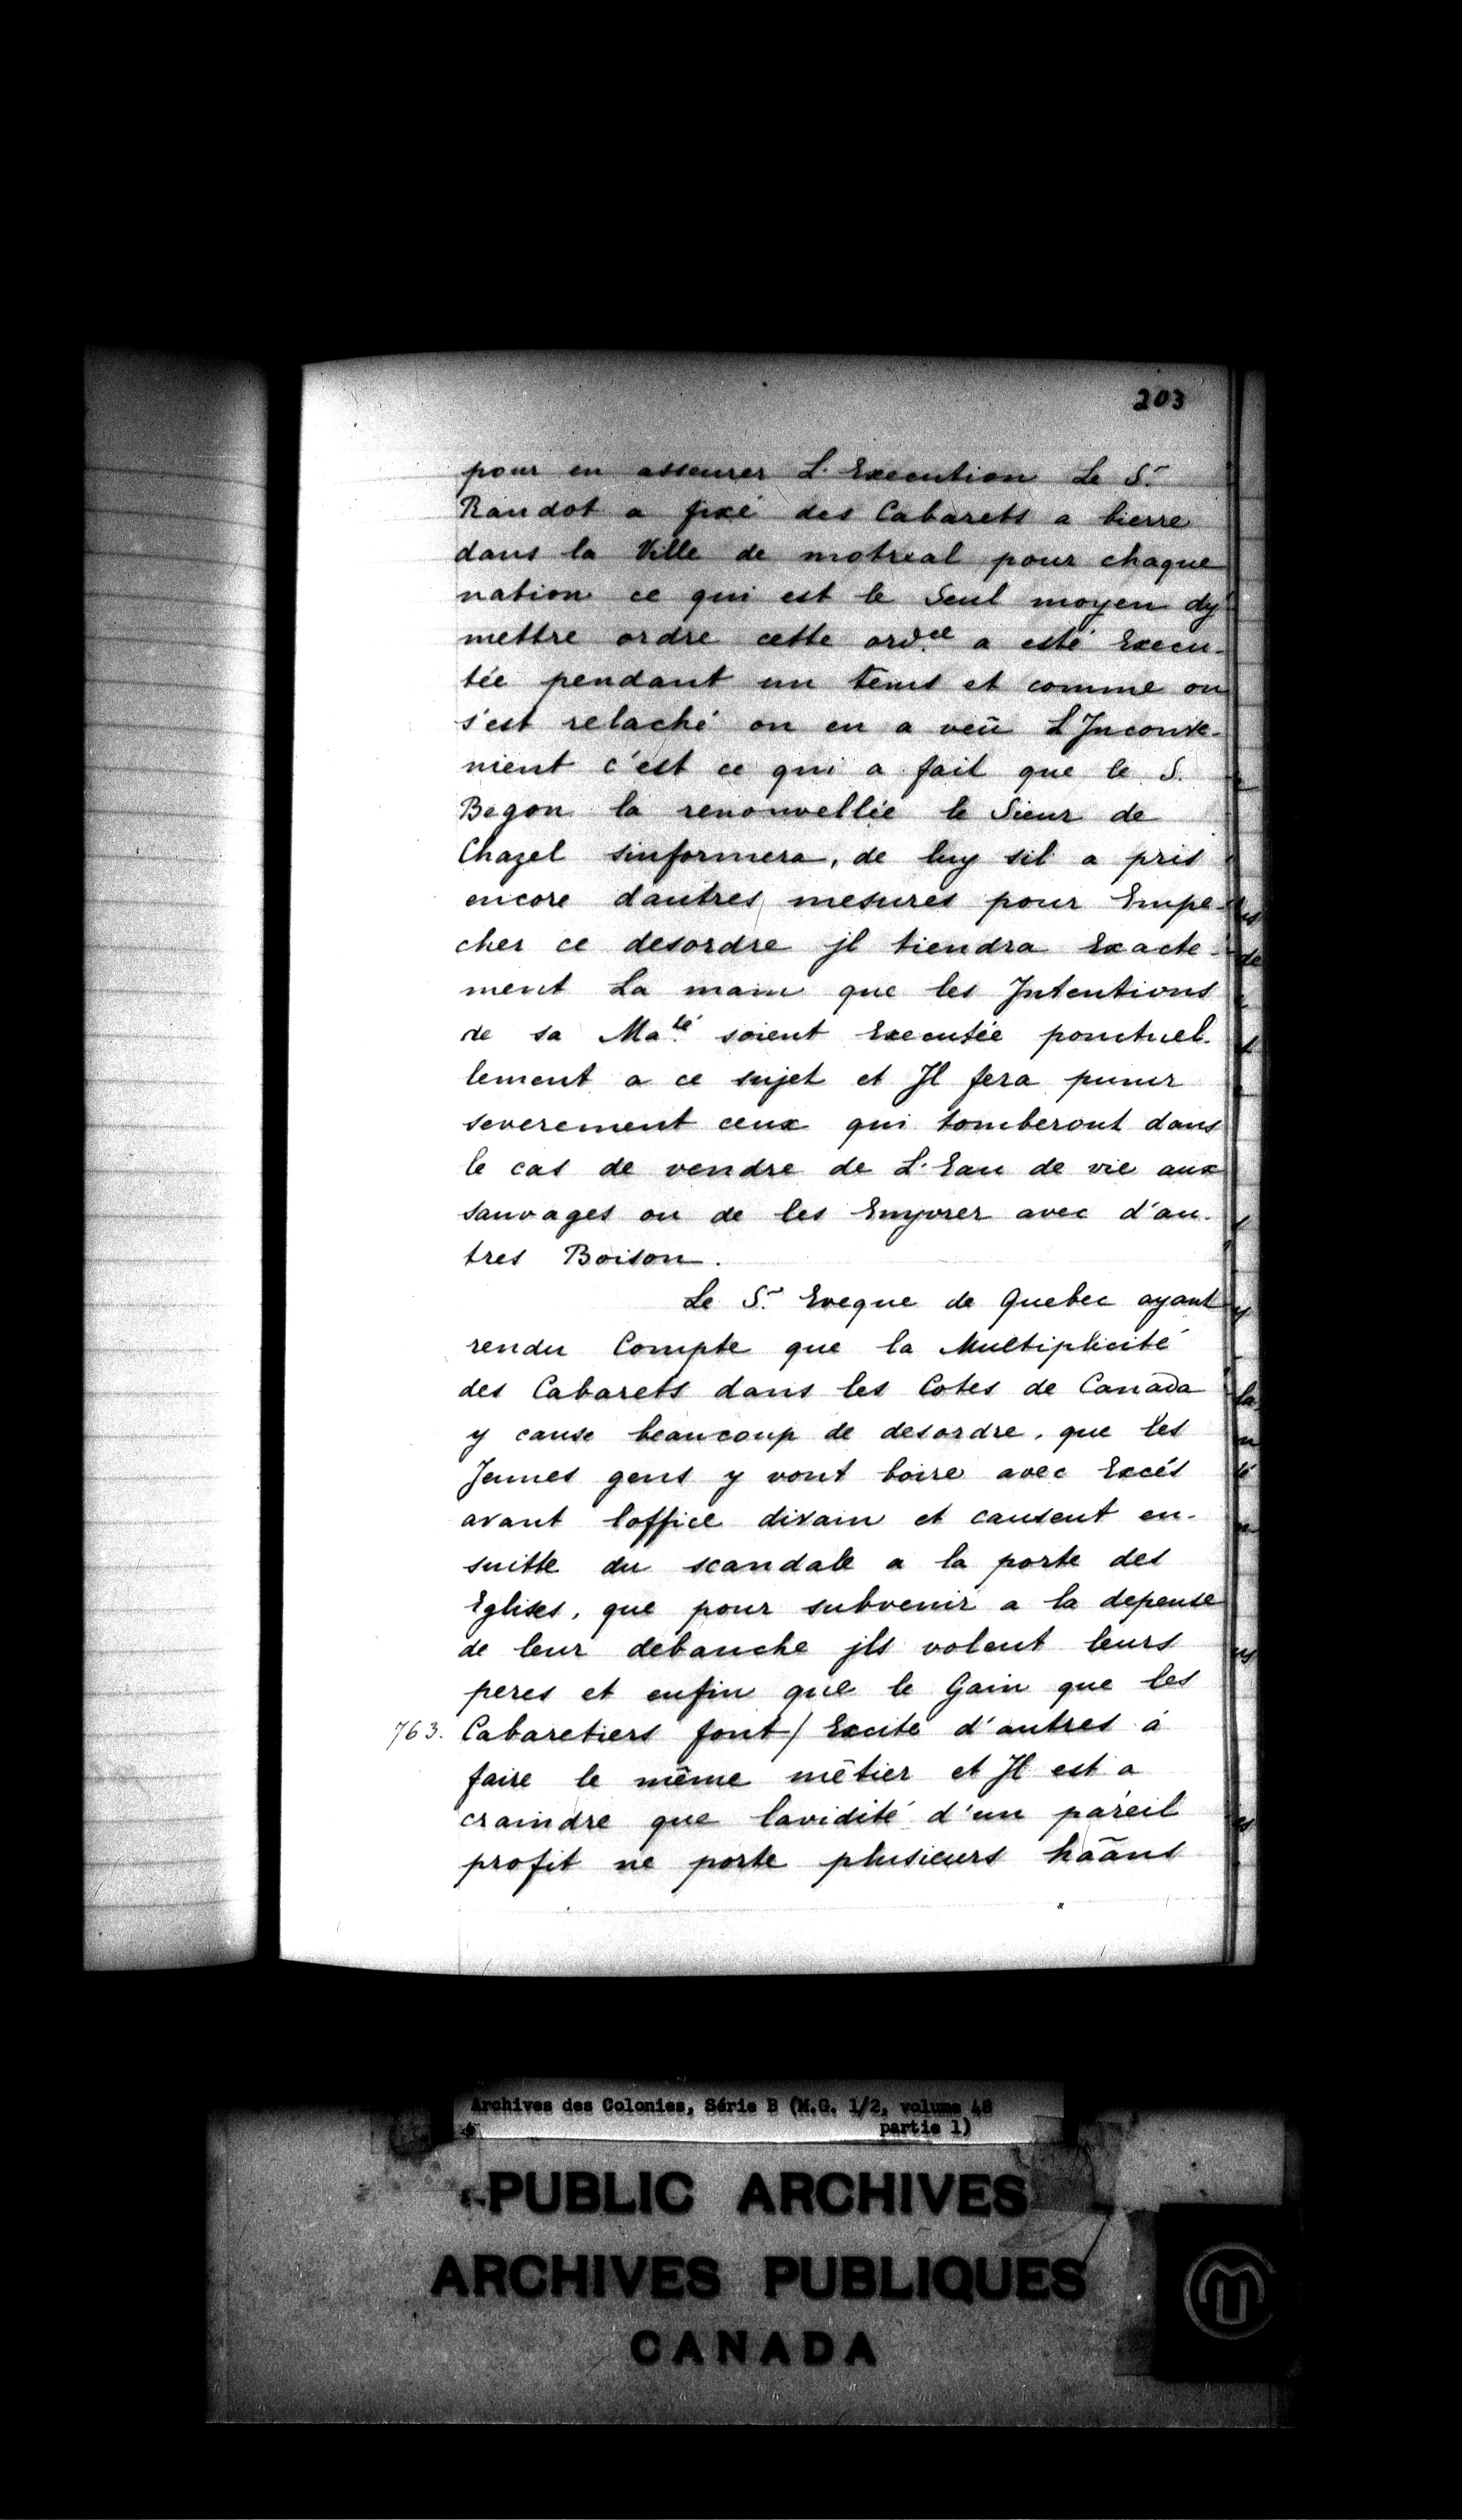 203
pour en asseurer L'Execution Le Sr
Raudot a fixé des Cabarets a bierre
dans la Ville de motreal pour chaque
nation ce qui est le Seul moyen dy
mettre ordre cette ord.ce a esté Execu-
tée pendant un tems et comme on
s'est relaché on en a veû L'Jnconve-
nient c'est ce qui a fait que le S.
Begon la renouvellée le Sieur de
Chazel sinformera, de luy sil a pris
encore dautres mesures pour Empe-
cher ce desordre jl tiendra Exacte-
ment La main que les Jntentions
de sa Ma.té soient Executée ponctuel-
lement a ce sujet et Jl fera punir
severement ceux qui tomberont dans
le cas de vendre de L'Eau de vie aux
sauvages ou de les Enyvrer avec d'au-
tres Boison.
Le Sr. Eveque de Quebec ayant
rendu Compte que la Multiplicité
des Cabarets dans les Cotes de Canada
y cause beaucoup de desordre, que les
Jeunes gens y vont boire avec Excés
avant loffice divain et causent en-
suitte du scandale a la porte des
Eglises, que pour subvenir a la depense
de leur debauche jls volent leurs
peres et enfin que le Gain que les
763. Cabaretiers font / Excite d'autres á
faire le même mêtier et Jl est a
craindre que lavidité d'un pareil
profit ne porte plusieurs hãans
Archives des Colonies, Série B (M.G. 1/2, volume 48
partie 1)
PUBLIC ARCHIVES
ARCHIVES PUBLIQUES
CANADA